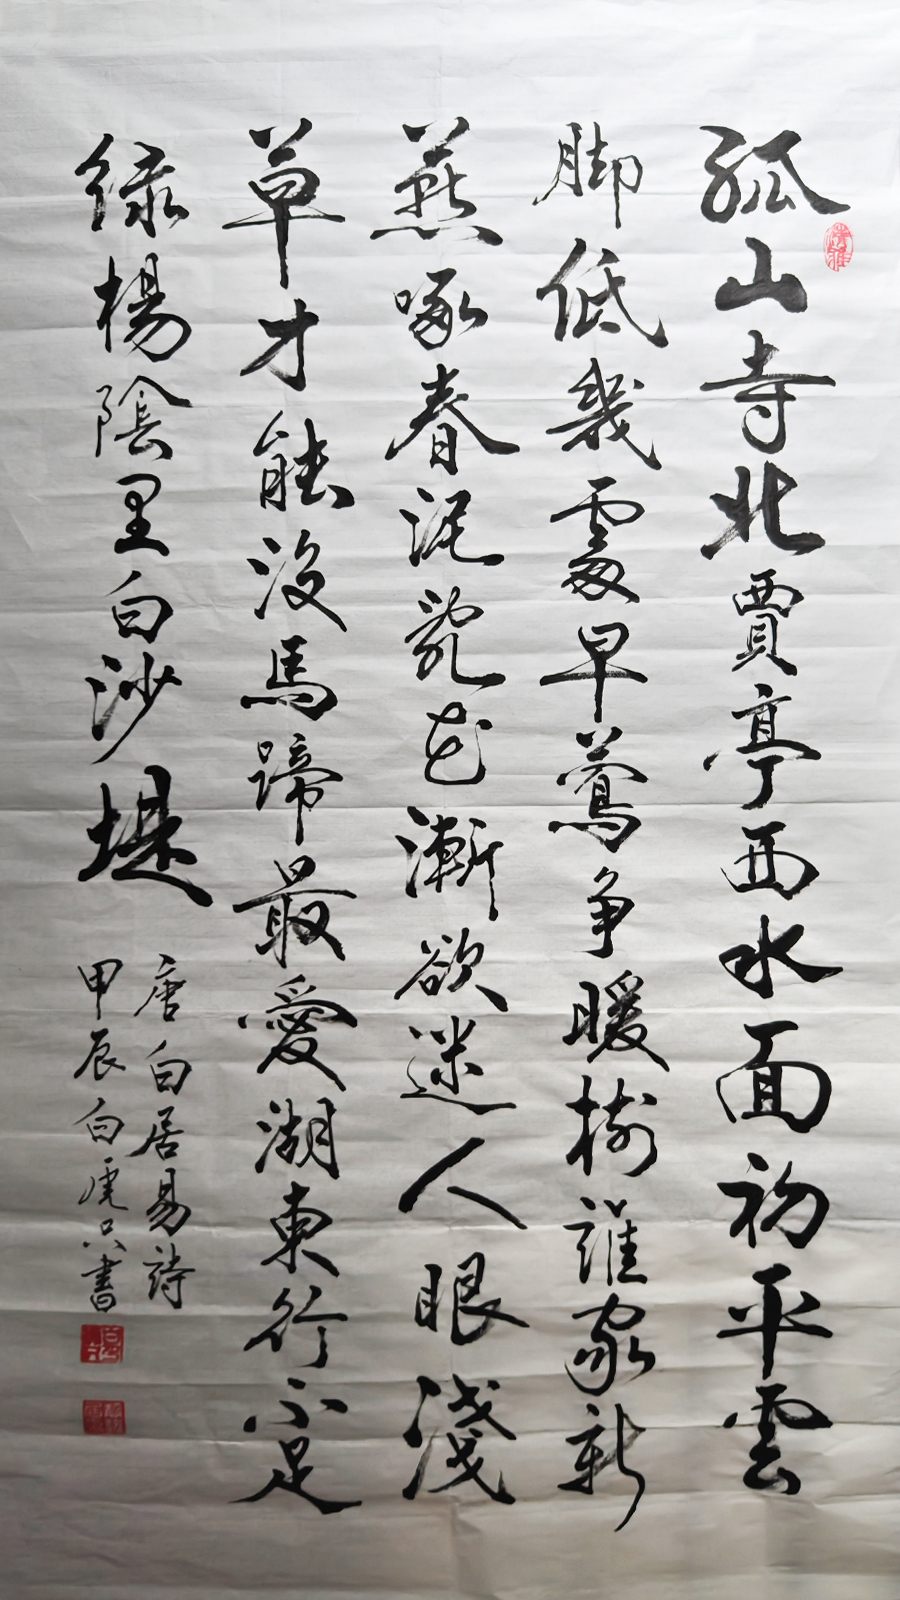 孤山寺北賈亭西水面初平雲
脚低幾處早鶯争暖樹誰家新
燕啄春泥亂花漸欲迷人眼淺
草才能没馬蹄最愛湖東行不足
绿楊陰里白沙堤
唐白居易詩
甲辰白虎只書